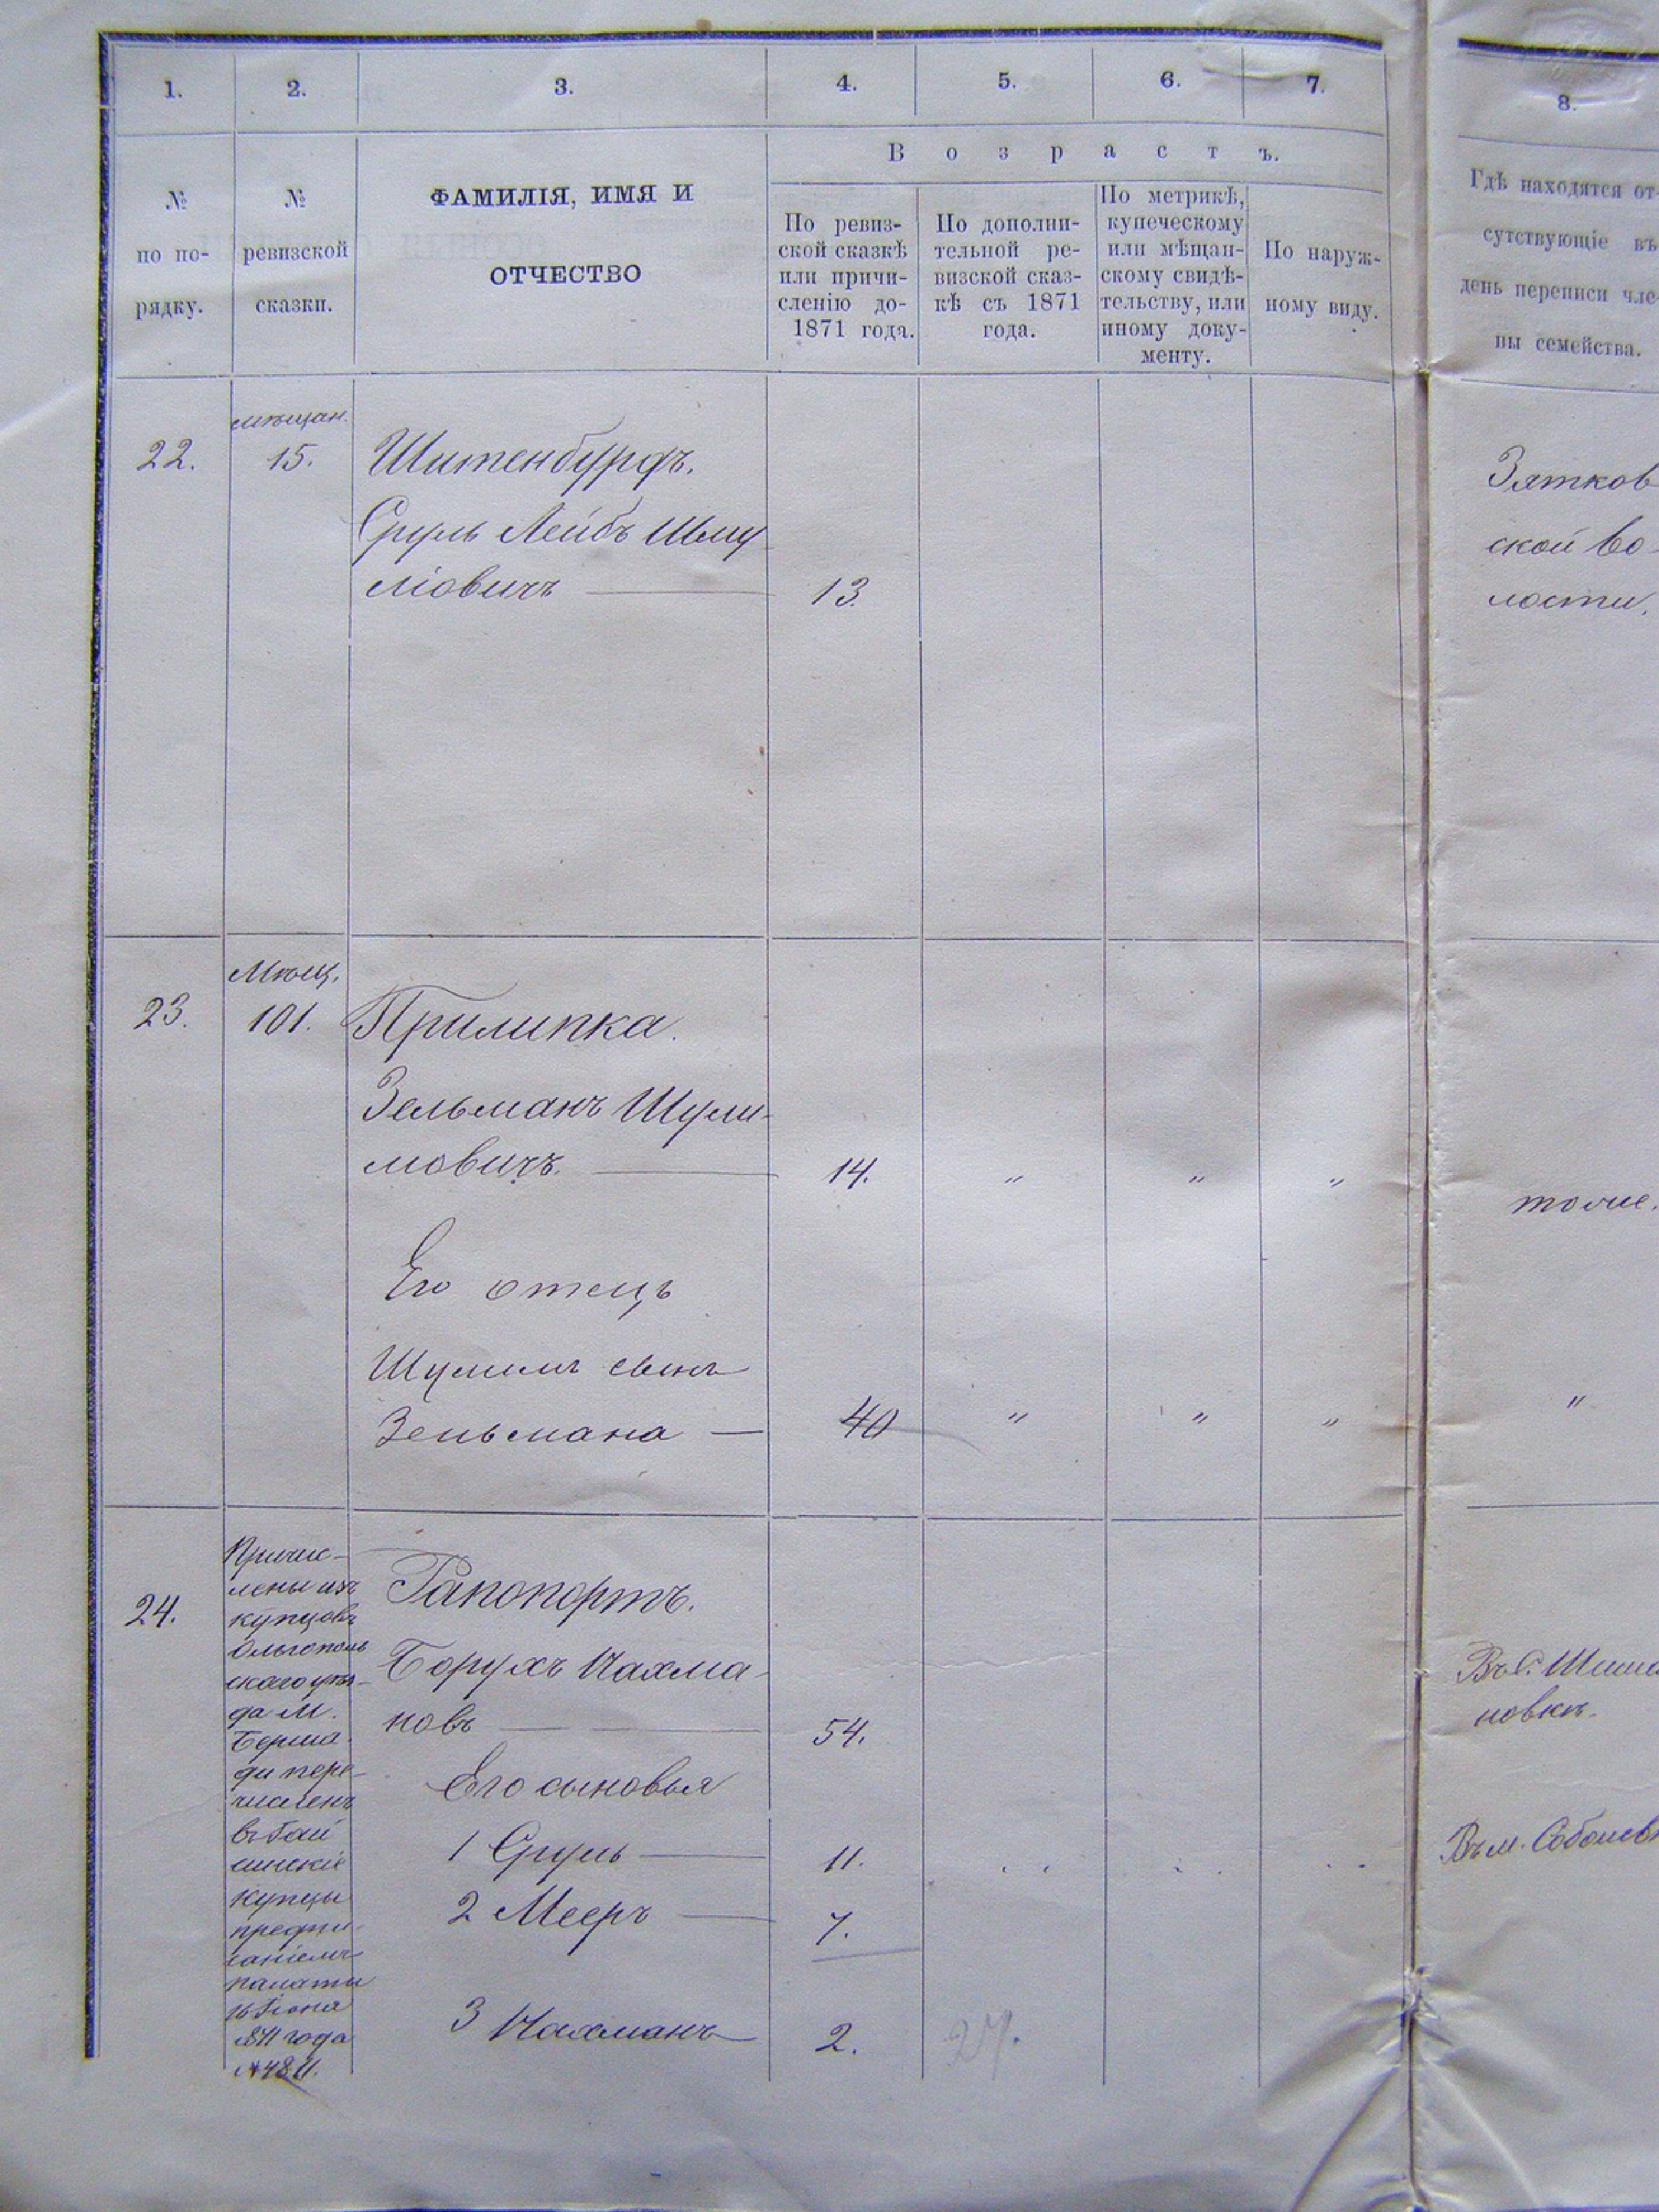 1. 2. 3. 4. 5. 6. 7. 8.
В о з р а с т ъ.
№
по по-
рядку.
№
ревизской
сказки.
ФАМИЛІЯ, ИМЯ И
ОТЧЕСТВО
По ревиз-
ской сказкѣ
или причи-
сленію до
1871 года.
По дополни-
тельной ре-
визской сказ-
кѣ съ 1871
года.
По метрикѣ,
купеческому
или мѣщан-
скому свидѣ-
тельству, или
иному доку-
менту.
По наруж-
ному виду.
Гдѣ находятся от-
сутствующіе въ
день переписи чле-
ны семейства.
мѣщан.
22. 15.
Сруль Лейбъ Шму
ліовичъ 13.
Зятков
ской во-
лости.
Мѣщ.
23. 101. Прилипка.
Зельманъ Шули-
мовичъ. 14. " " "
тоже.
Его отецъ
Шулимъ сынъ
Зельмана — 40 " " " "
24.
Причис-
лены изъ
купцовъ
Ольгополь
скаго уѣз-
да М.
Берша
ди пере-
численъ
въ Гай
синскіе
купцы
предпи-
саніемъ
палаты
16 Іюня
1871 года
№ 4811.
Рапопортъ.
Борухъ Нахма-
новъ — 54.
Его сыновья
1 Сруль — 11.
2 Мееръ — 7.
3 Нахманъ 2. 27.
Въ С. Шима
новкѣ.
Въ м. Соболевк